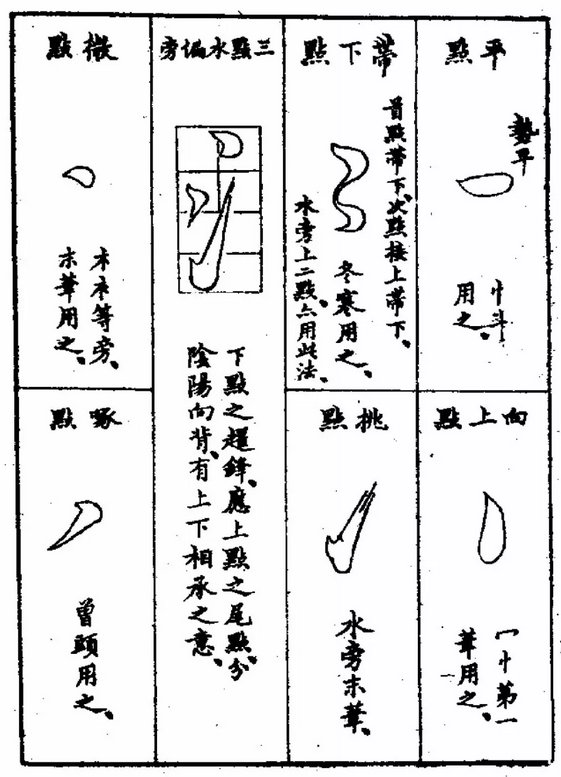 平點
勢平
忄斗
用之、
向上點
冖忄第一
筆用之、
帶下點
首點帶下、次點接上帶下、
冬寒用之、
水旁上二點亦用此法、
挑點
水旁末筆、
三點水偏旁
下點之趯鋒、應上點之尾、點分
陰陽向背、有上下相承之意、
微點
木礻等旁、
末筆用之、
啄點
曾頭用之、